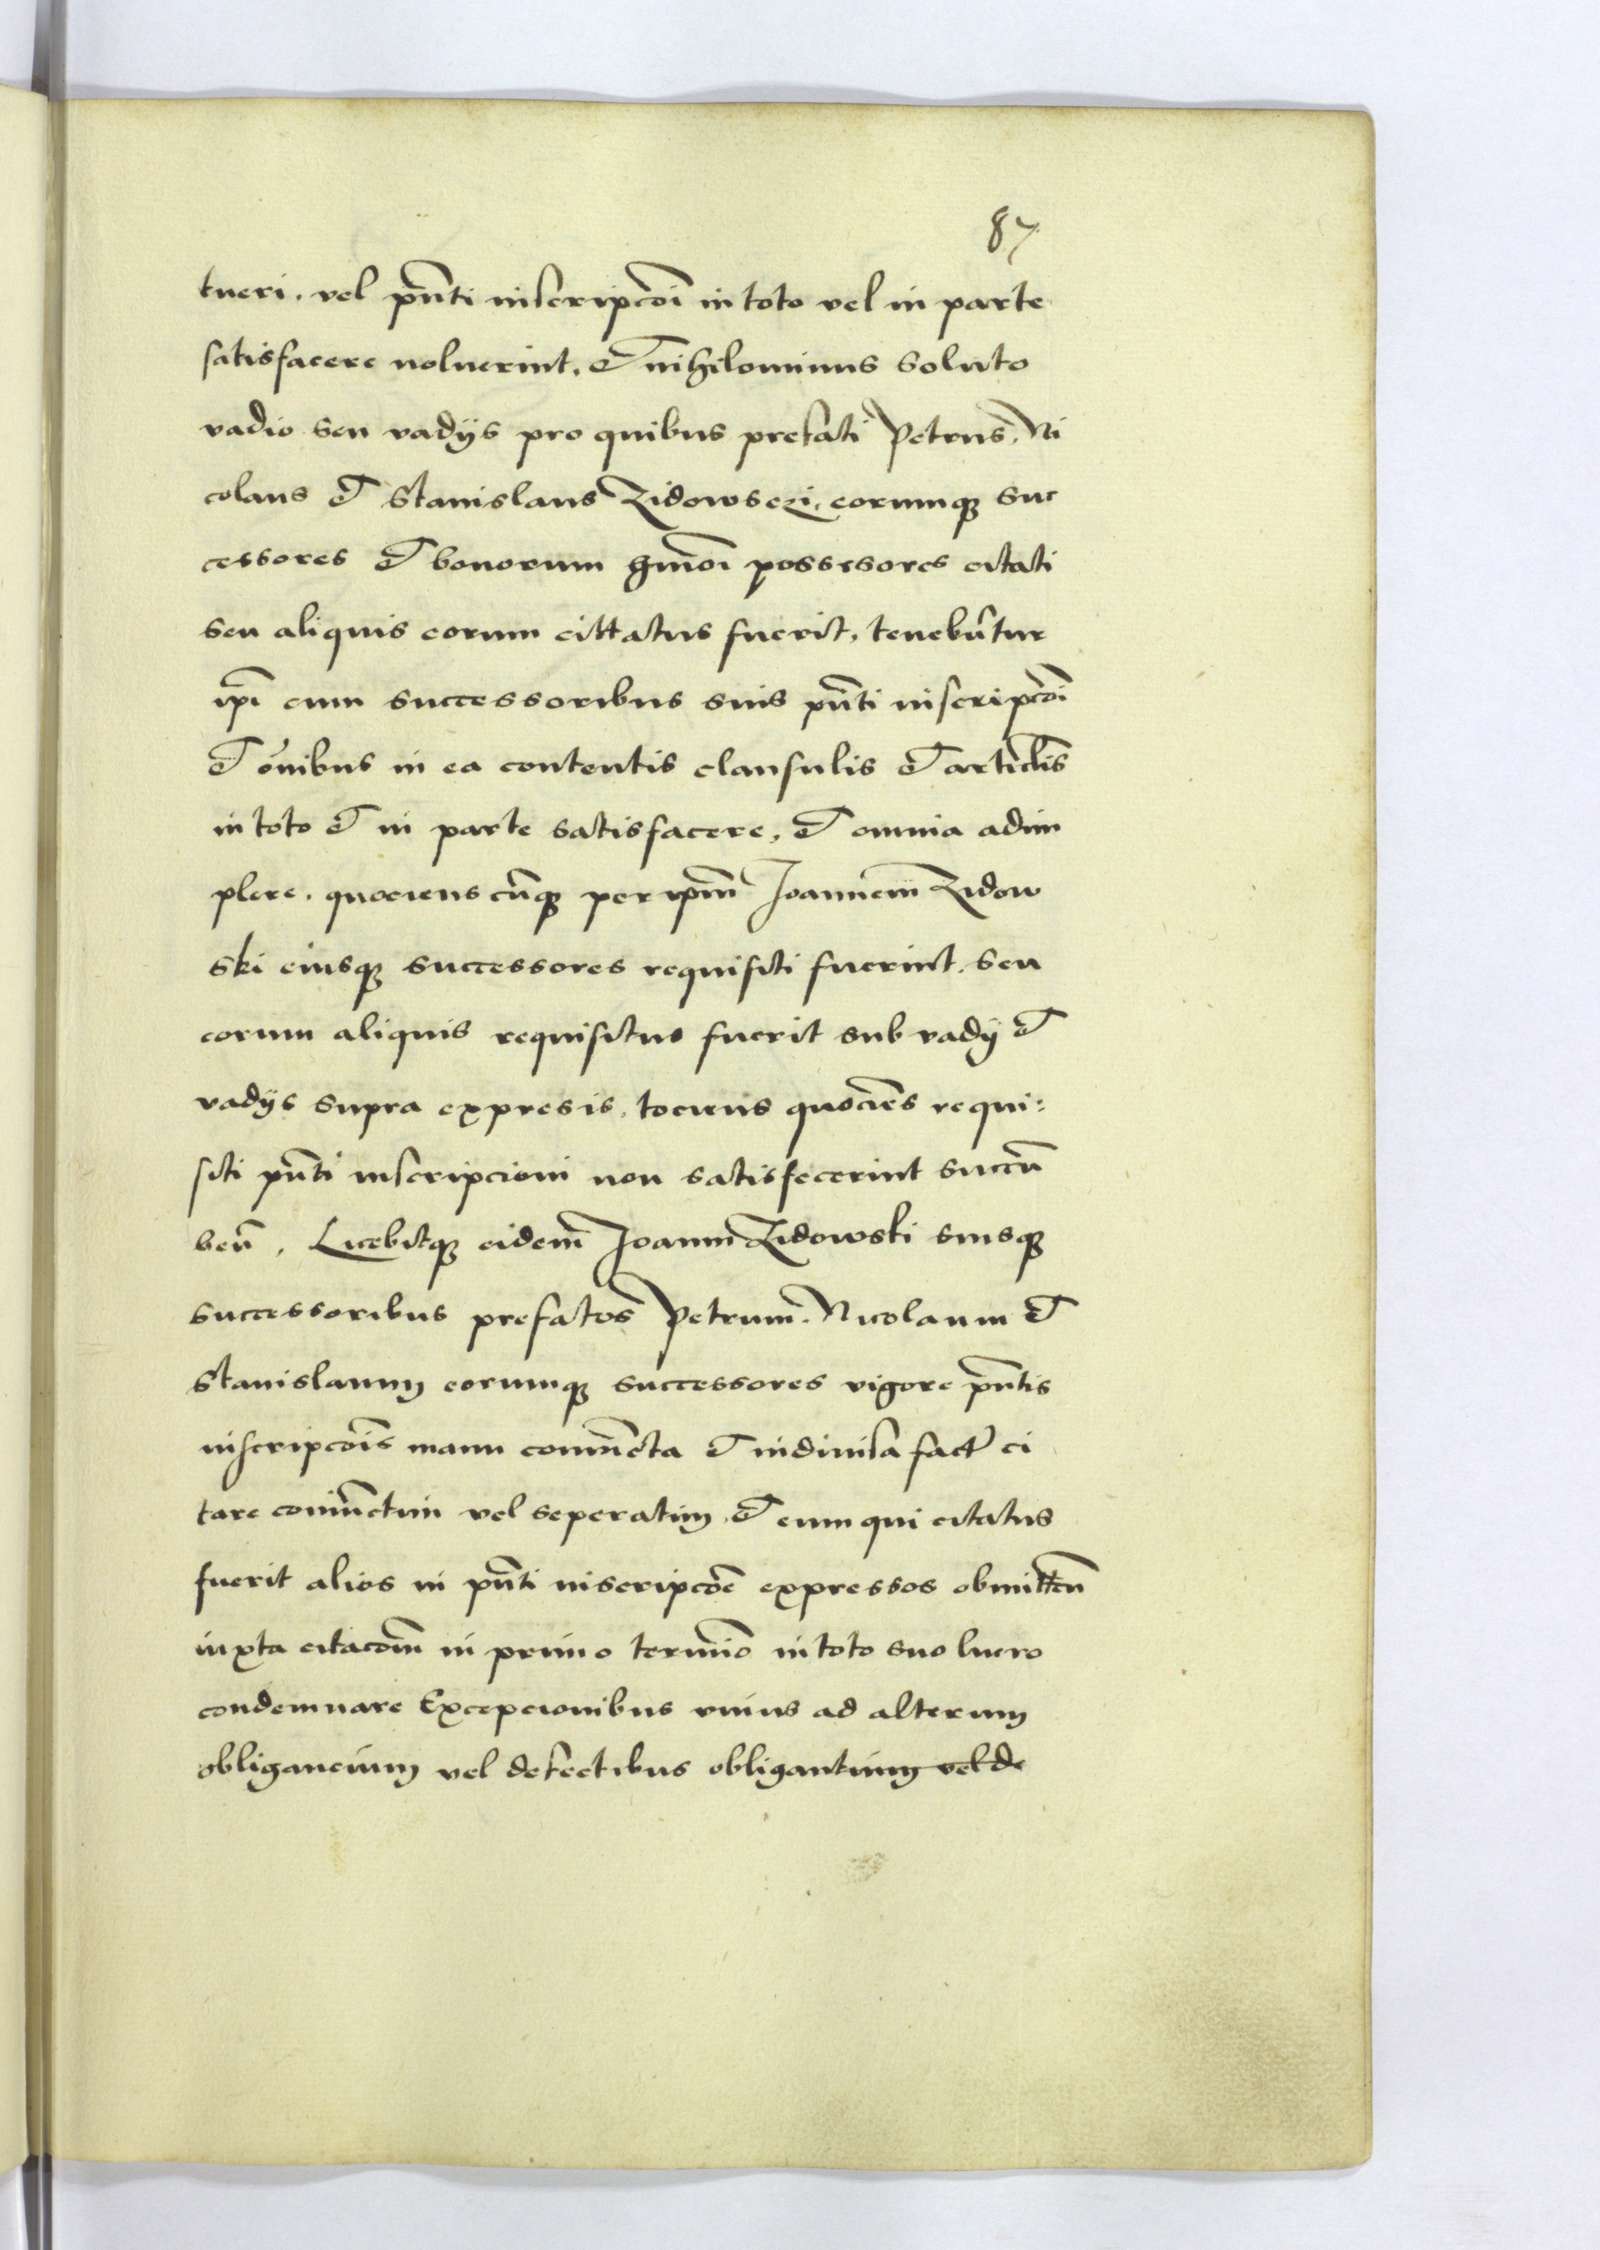 87
tueri, vel pñti inscripcõi in toto vel in parte
satisfacere noluerint, et nihilominus soluto
vadio seu vadijs pro quibus prefati Petrus, Ni
colaus et Stanislaus Zidowsczi, eorumq suc
cessores et bonorum hmõi possessores citati
seu aliquis eorum cittatus fuerit, tenebũtur
ipi cum successoribus suis pñti inscripcõi
et õnibus in ea contentis clausulis et articlis
in toto et in parte satisfacere, et omnia adim
plere, quociens cũq per ipm Joannem Zidow
ski eiusq successores requisiti fuerint, seu
eorum aliquis requisitus fuerit sub vadij et
vadijs supra expresis, tociens quociẽs requi:
siti pñti inscripcioni non satisfecerint succũ
ben̄. Licebitq eidem Joanni Zidowski suisq
successoribus prefatos Petrum, Nicolaum et
Stanislaum eorumq successores vigore pñtis
inscripcõis manu coniũcta et indiuisa fact ci
tare coniũctim vel seperatim, et eum qui citatus
fuerit alios in pñti inscripcõe expressos obmitten̄
iuxta citacõm in primo termĩo in toto suo lucro
condemnare Excepcionibus vnius ad alterum
obligancium vel defectibus obligantium vel de